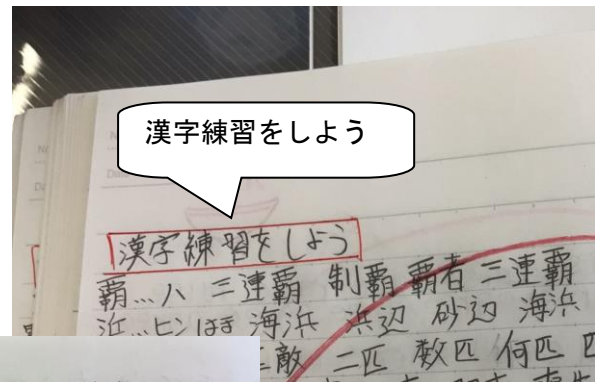 漢字練習をしよう
漢字練習をしよう
覇…ハ 三連覇 制覇 覇者 三連覇
浜…ヒン はま 海浜 浜辺 砂辺 海浜
敵 二匹 数匹 何匹